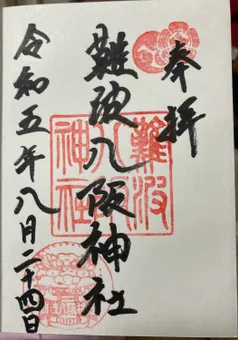 奉拝
難波八阪神社
令和五年八月二十四日
難波八阪神社